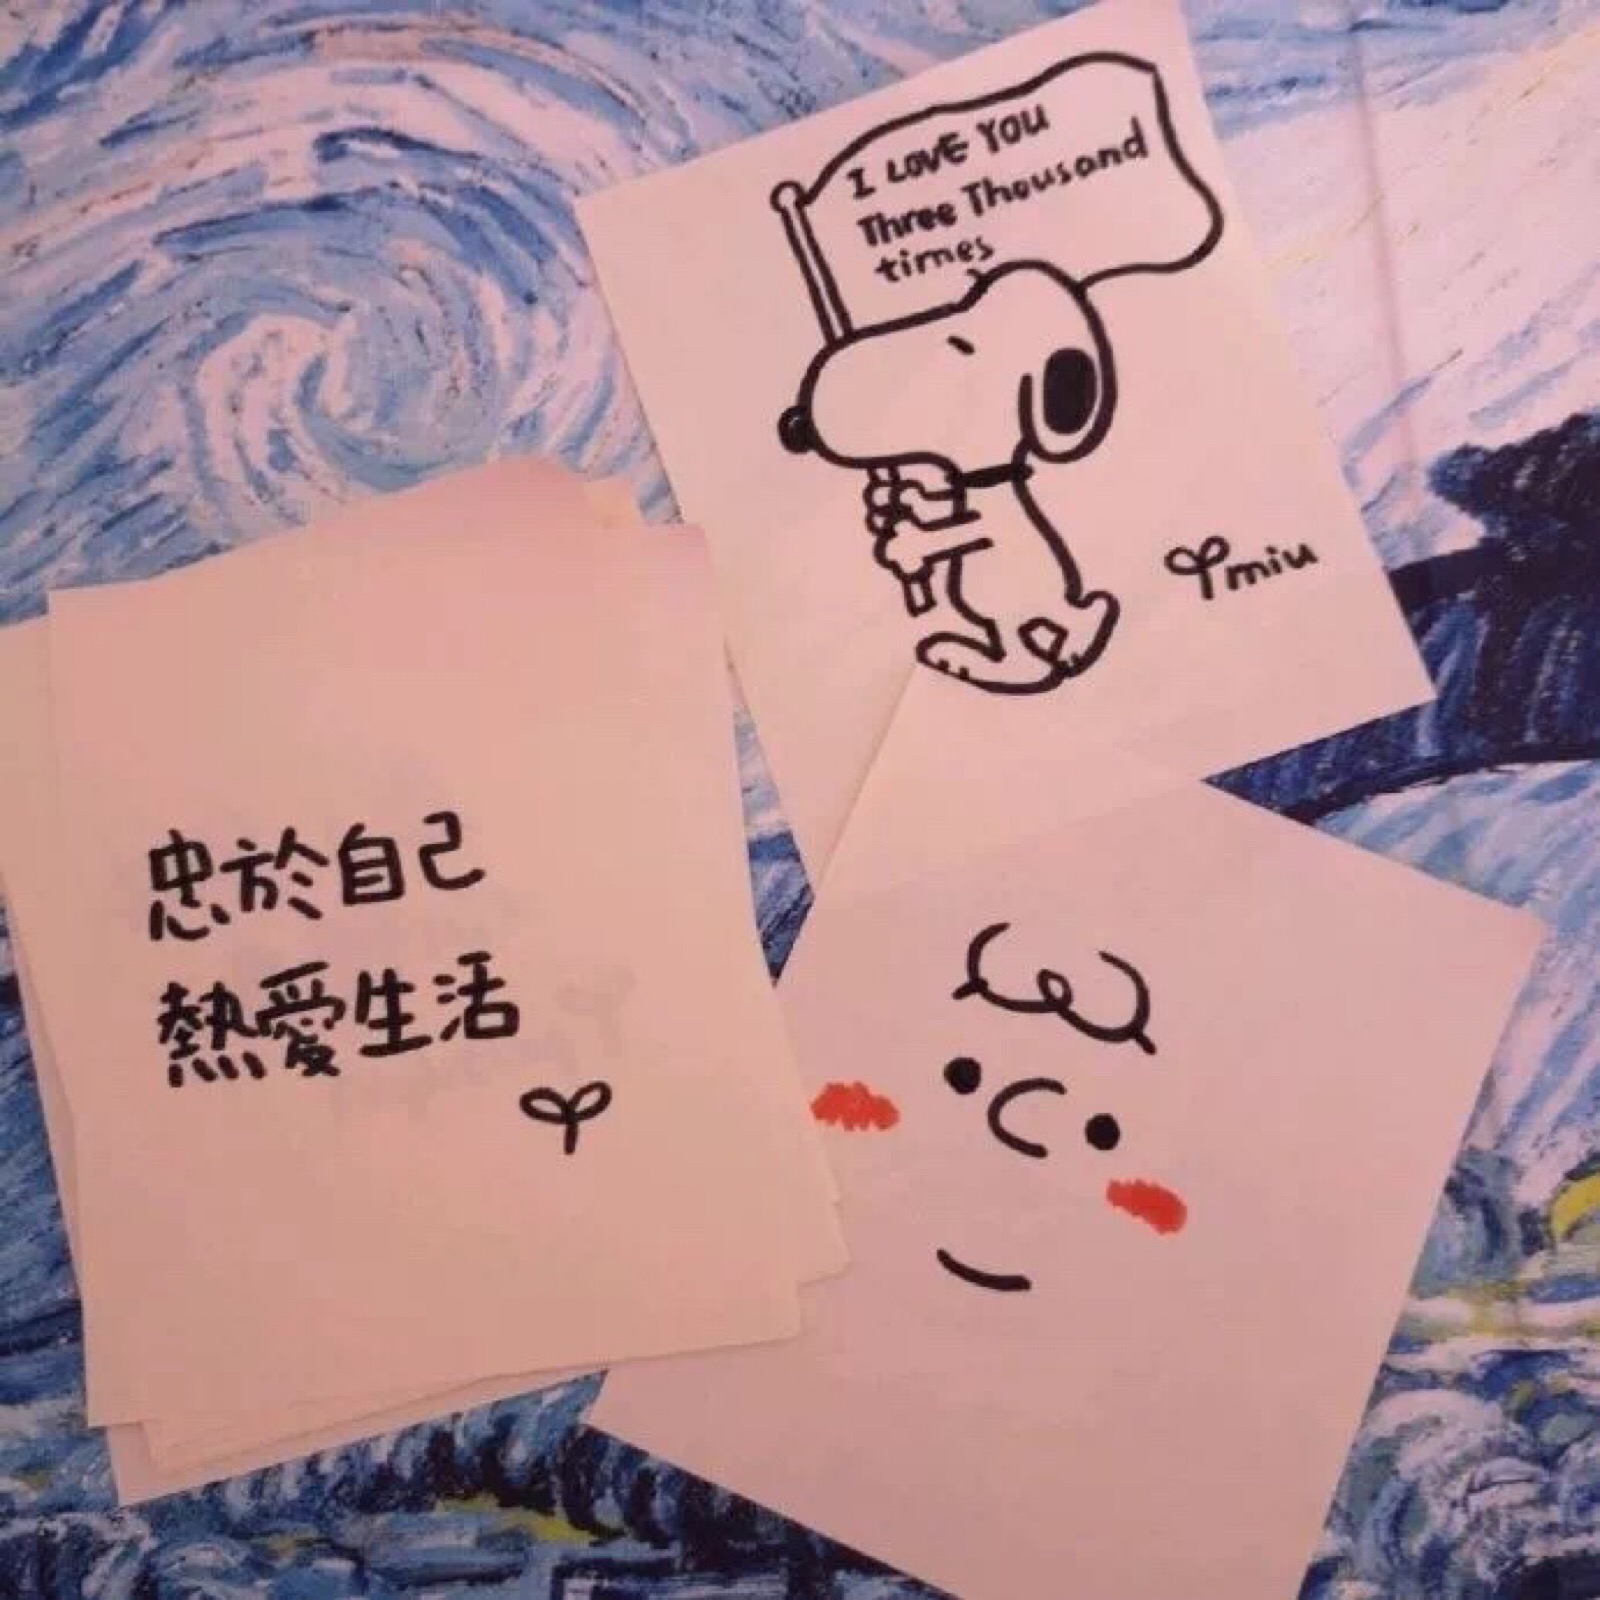 I LOVE YOU
Three Thousand
times
miu
忠於自己
熱愛生活